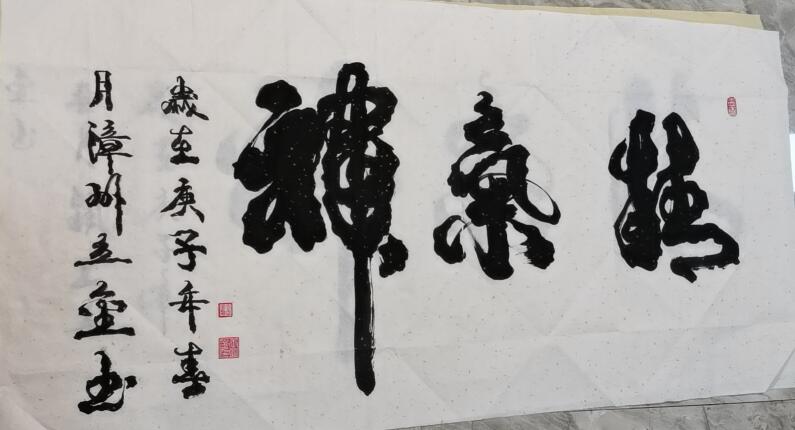 精氣神
歲在庚子年春
月漳州立金书